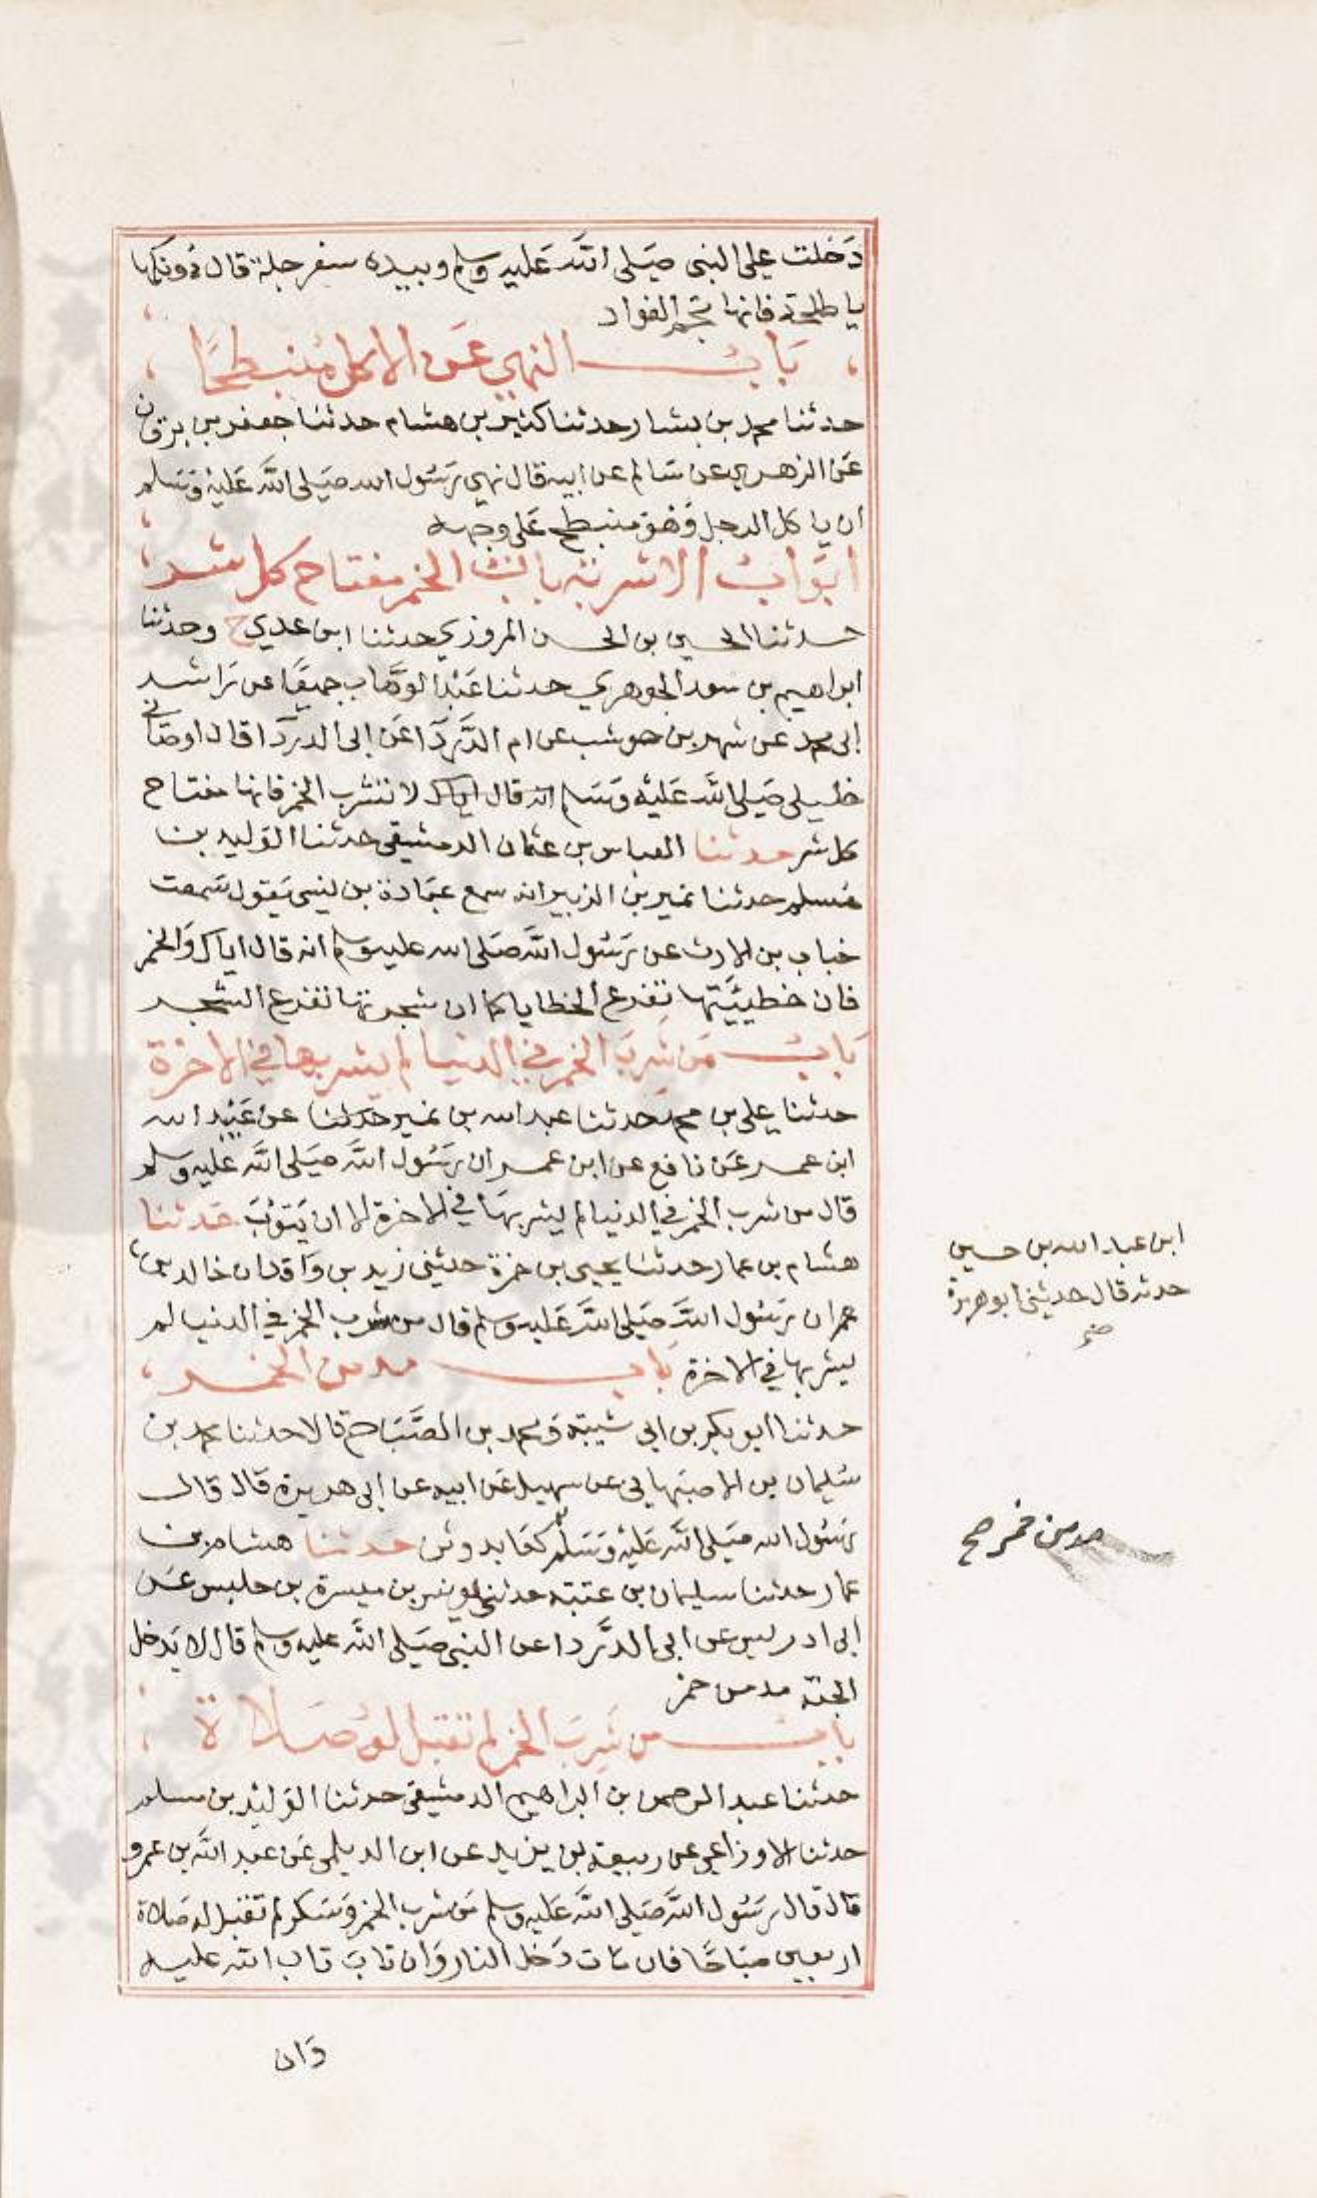 دخلت على النبي صَلى اللَّه عَليه وسلم وبيده سفرجلة قال دونكها
يا طلحة فانها تجم الفواد
بَابُ النهي عَن الاكل منبطحًا
حدثنا محمد بن بشار حدثنا كثير بن هشام حدثنا جعفر بن برقان
عَن الزهري عن سَالم عن ابيه قال نهي رَسُول الله صَلى اللَّه عَليْه وَسَلم
ان ياكل الرجل وَهوَ منبطح عَلى وجهه
ابوَابُ الاشربة بابُ الخمر مفتاح كل شر
حدثنا الحسين بن الحسن المروزي حدثنا ابن عدي ح وحدثنا
ابراهيم بن سعد الجوهري حدثنا عَبْد الوَهَّاب جميعًا عن رَاشد
ابي محمد عن شهر بن حوشب عن ام الدَّردَا عَن ابي الدردَا قال اوصَاني
خليلي صَلى اللَّه عَليْه وَسَلم انه قال اياك لا تشرب الخمر فانها مفتاح
كل شر حدثنا العباس بن عثمان الدمشقي حدثنا الوَليد بن
مُسلم حدثنا نمير بن الزبير انه سمع عبَادة بن نسي يَقول سَمعت
خباب بن الارث عن رَسُول اللَّه صَلى الله عليه وَسلم انه قال اياك وَالخمر
فان خطيئَتها تفرع الخطايا كما ان شجرتها تفرع الشجر
بَابُ مَن شَربَ الخمر في الدنيا لم يشربها في الاخرة
حدثنا علي بن محمد حدثنا عبد الله بن نمير حدثنا عن عَبْيد الله
ابن عمر عَن نافع عن ابن عمر ان رَسُول اللَّه صَلى اللَّه عَليه وسلم
قال من شرب الخمر في الدنيا لم يشربهَا في الاخرة الا ان يَتوْبَ حَدثنا
هشام بن عمار حدثنا يحيى بن حمزة حدثني زيد بن وَاقد ان خالد بن
عمران رَسُول اللَّه صَلى اللَّه عَليه وسلم قال من شرب الخمر في الدنيا لم
يشربها في الاخرة بَاب مدمن الخمر
حدثنا ابو بكر بن ابي شيبة وَمحمد بن الصَّبَاح قالا حدثنا محمد بن
سُليمان بن الاصبَهاني عن سهيل عَن ابيه عن ابي هريرة قال قال
رَسُول الله صَلى اللَّه عَليْه وَسَلم كعَابد وثن حَدثنا هشام بن
عمار حدثنا سليمان بن عتبة حدثني يونس بن ميسرة بن حلبس عَن
ابي ادريس عن ابي الدَّردا عن النبي صَلى اللَّه عليه وسلم قال لا يَدخل
الجنة مدمن خمر
بابُ من شَربَ الخمر لم تقبل له صَلاة
حدثنا عبد الرحمن بن ابراهيم الدمشقي حدثنا الوَليْد بن مسلم
حدثنا الاوزاعي عن ربيعة بن يزيد عن ابن الديلمي عَن عبد اللَّه بن عمرو
قال قال رَسُول اللَّه صَلى اللَّه عَليه وسلم مَن شرب الخمر وَسَكر لم تقبل له صَلاة
اربعين صبَاحًا فان مَات دَخل النار وَان تابَ تاب اللَّه عليه
وَان
ابن عبد الله بن حسين
حدثه قال حدثني ابو هريرة
صح
مدمن خمر صح